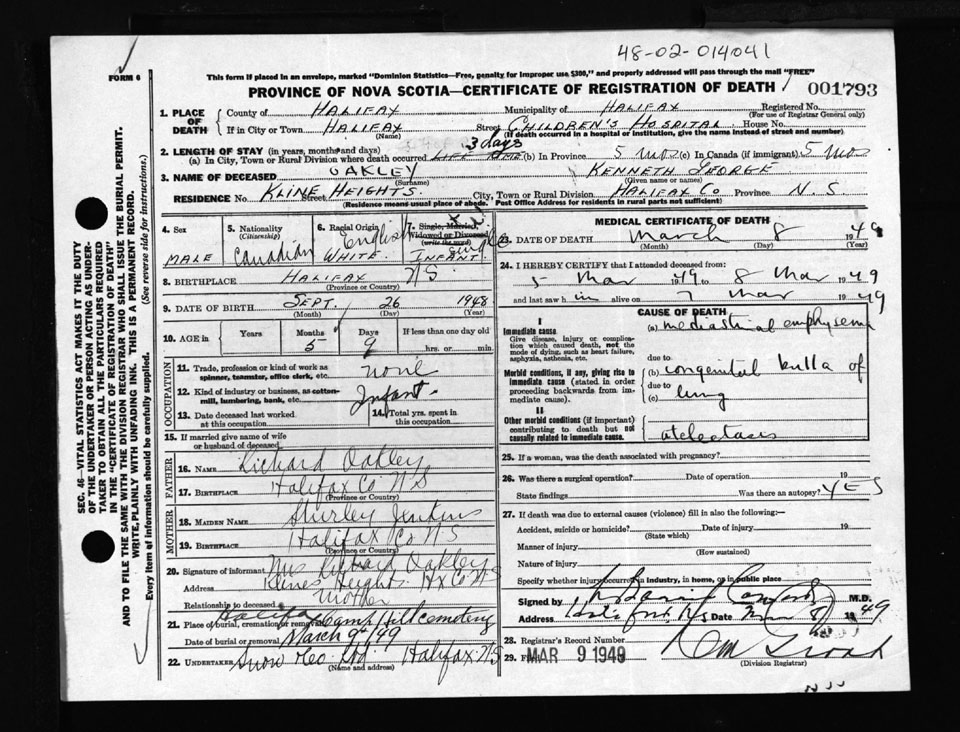 48-02-014041
FORM 6
This form if placed in an envelope, marked "Dominion Statistics—Free, penalty for improper use $300," and properly addressed will pass through the mail "FREE"
PROVINCE OF NOVA SCOTIA—CERTIFICATE OF REGISTRATION OF DEATH
001793
1. PLACE OF DEATH
County of HALIFAX Municipality of HALIFAX Registered No.
(For use of Registrar General only)
If in City or Town HALIFAX Street CHILDREN'S HOSPITAL House No.
(Name) (If death occurred in a hospital or institution, give the name instead of street and number)
2. LENGTH OF STAY (in years, months and days) 3 days
(a) In City, Town or Rural Division where death occurred LIFE TIME (b) In Province 5 MOS (c) In Canada (if immigrant) 5 MOS
3. NAME OF DECEASED OAKLEY KENNETH GEORGE
(Surname) (Given name or names)
RESIDENCE No. Street KLINE HEIGHTS City, Town or Rural Division HALIFAX CO Province N.S
(Residence means usual place of abode. Post Office Address for residents in rural parts not sufficient)
4. Sex
MALE
5. Nationality
(Citizenship)
Canadian
6. Racial Origin
English
WHITE
7. Single, Married,
Widowed or Divorced
(write the word)
Single
INFANT
8. BIRTHPLACE HALIFAX NS
(Province or Country)
9. DATE OF BIRTH SEPT. 26 1948
(Month) (Day) (Year)
10. AGE IN Years Months Days If less than one day old
5 9 hrs. or min.
OCCUPATION
11. Trade, profession or kind of work as
spinner, teamster, office clerk, etc. none
12. Kind of industry or business, as cotton-
mill, lumbering, bank, etc. Infant
13. Date deceased last worked
at this occupation
14. Total yrs. spent in
this occupation
15. If married give name of wife
or husband of deceased
FATHER
16. NAME Richard Oakley
17. BIRTHPLACE Halifax Co N.S
(Province or Country)
MOTHER
18. MAIDEN NAME Shirley Jenkins
19. BIRTHPLACE Halifax Co N.S
(Province or Country)
20. Signature of informant Mrs Richard Oakley
Address Klines Heights Hx Co NS
Relationship to deceased Mother
21. Place of burial, cremation or removal Camp Hill cemetery
Date of burial or removal March 9th/49
22. UNDERTAKER Snow & Co Ltd Halifax NS
(Name and address)
MEDICAL CERTIFICATE OF DEATH
23. DATE OF DEATH March 8 1949
(Month) (Day) (Year)
24. I HEREBY CERTIFY that I attended deceased from:
5 Mar 1949 to 8 Mar 1949
and last saw him alive on 7 Mar 1949
CAUSE OF DEATH
I
Immediate cause
Give disease, injury or complica-
tion which caused death, not the
mode of dying, such as heart failure,
asphyxia, asthenia, etc.
(a) mediastinal emphysema
due to
Morbid conditions, if any, giving rise to
immediate cause (stated in order
proceeding backwards from im-
mediate cause).
(b) congenital bulla of
due to
(c) lung
II
Other morbid conditions (if important)
contributing to death but not
causally related to immediate cause.
atelectasis
25. If a woman, was the death associated with pregnancy?
26. Was there a surgical operation? Date of operation 19
State findings Was there an autopsy? YES
27. If death was due to external causes (violence) fill in also the following:—
Accident, suicide or homicide? Date of injury 19
(State which)
Manner of injury
(How sustained)
Nature of injury
Specify whether injury occurred in industry, in home, or in public place
Signed by M.D.
Address NS Date Mar 8 1949
28. Registrar's Record Number
29. Filed MAR 9 1949
(Division Registrar)
SEC. 46—VITAL STATISTICS ACT MAKES IT THE DUTY
OF THE UNDERTAKER OR PERSON ACTING AS UNDER-
TAKER TO OBTAIN ALL THE PARTICULARS REQUIRED
IN THE "CERTIFICATE OF REGISTRATION OF DEATH"
AND TO FILE THE SAME WITH THE DIVISION REGISTRAR WHO SHALL ISSUE THE BURIAL PERMIT.
WRITE PLAINLY WITH UNFADING INK. THIS IS A PERMANENT RECORD.
Every item of information should be carefully supplied. (See reverse side for instructions.)